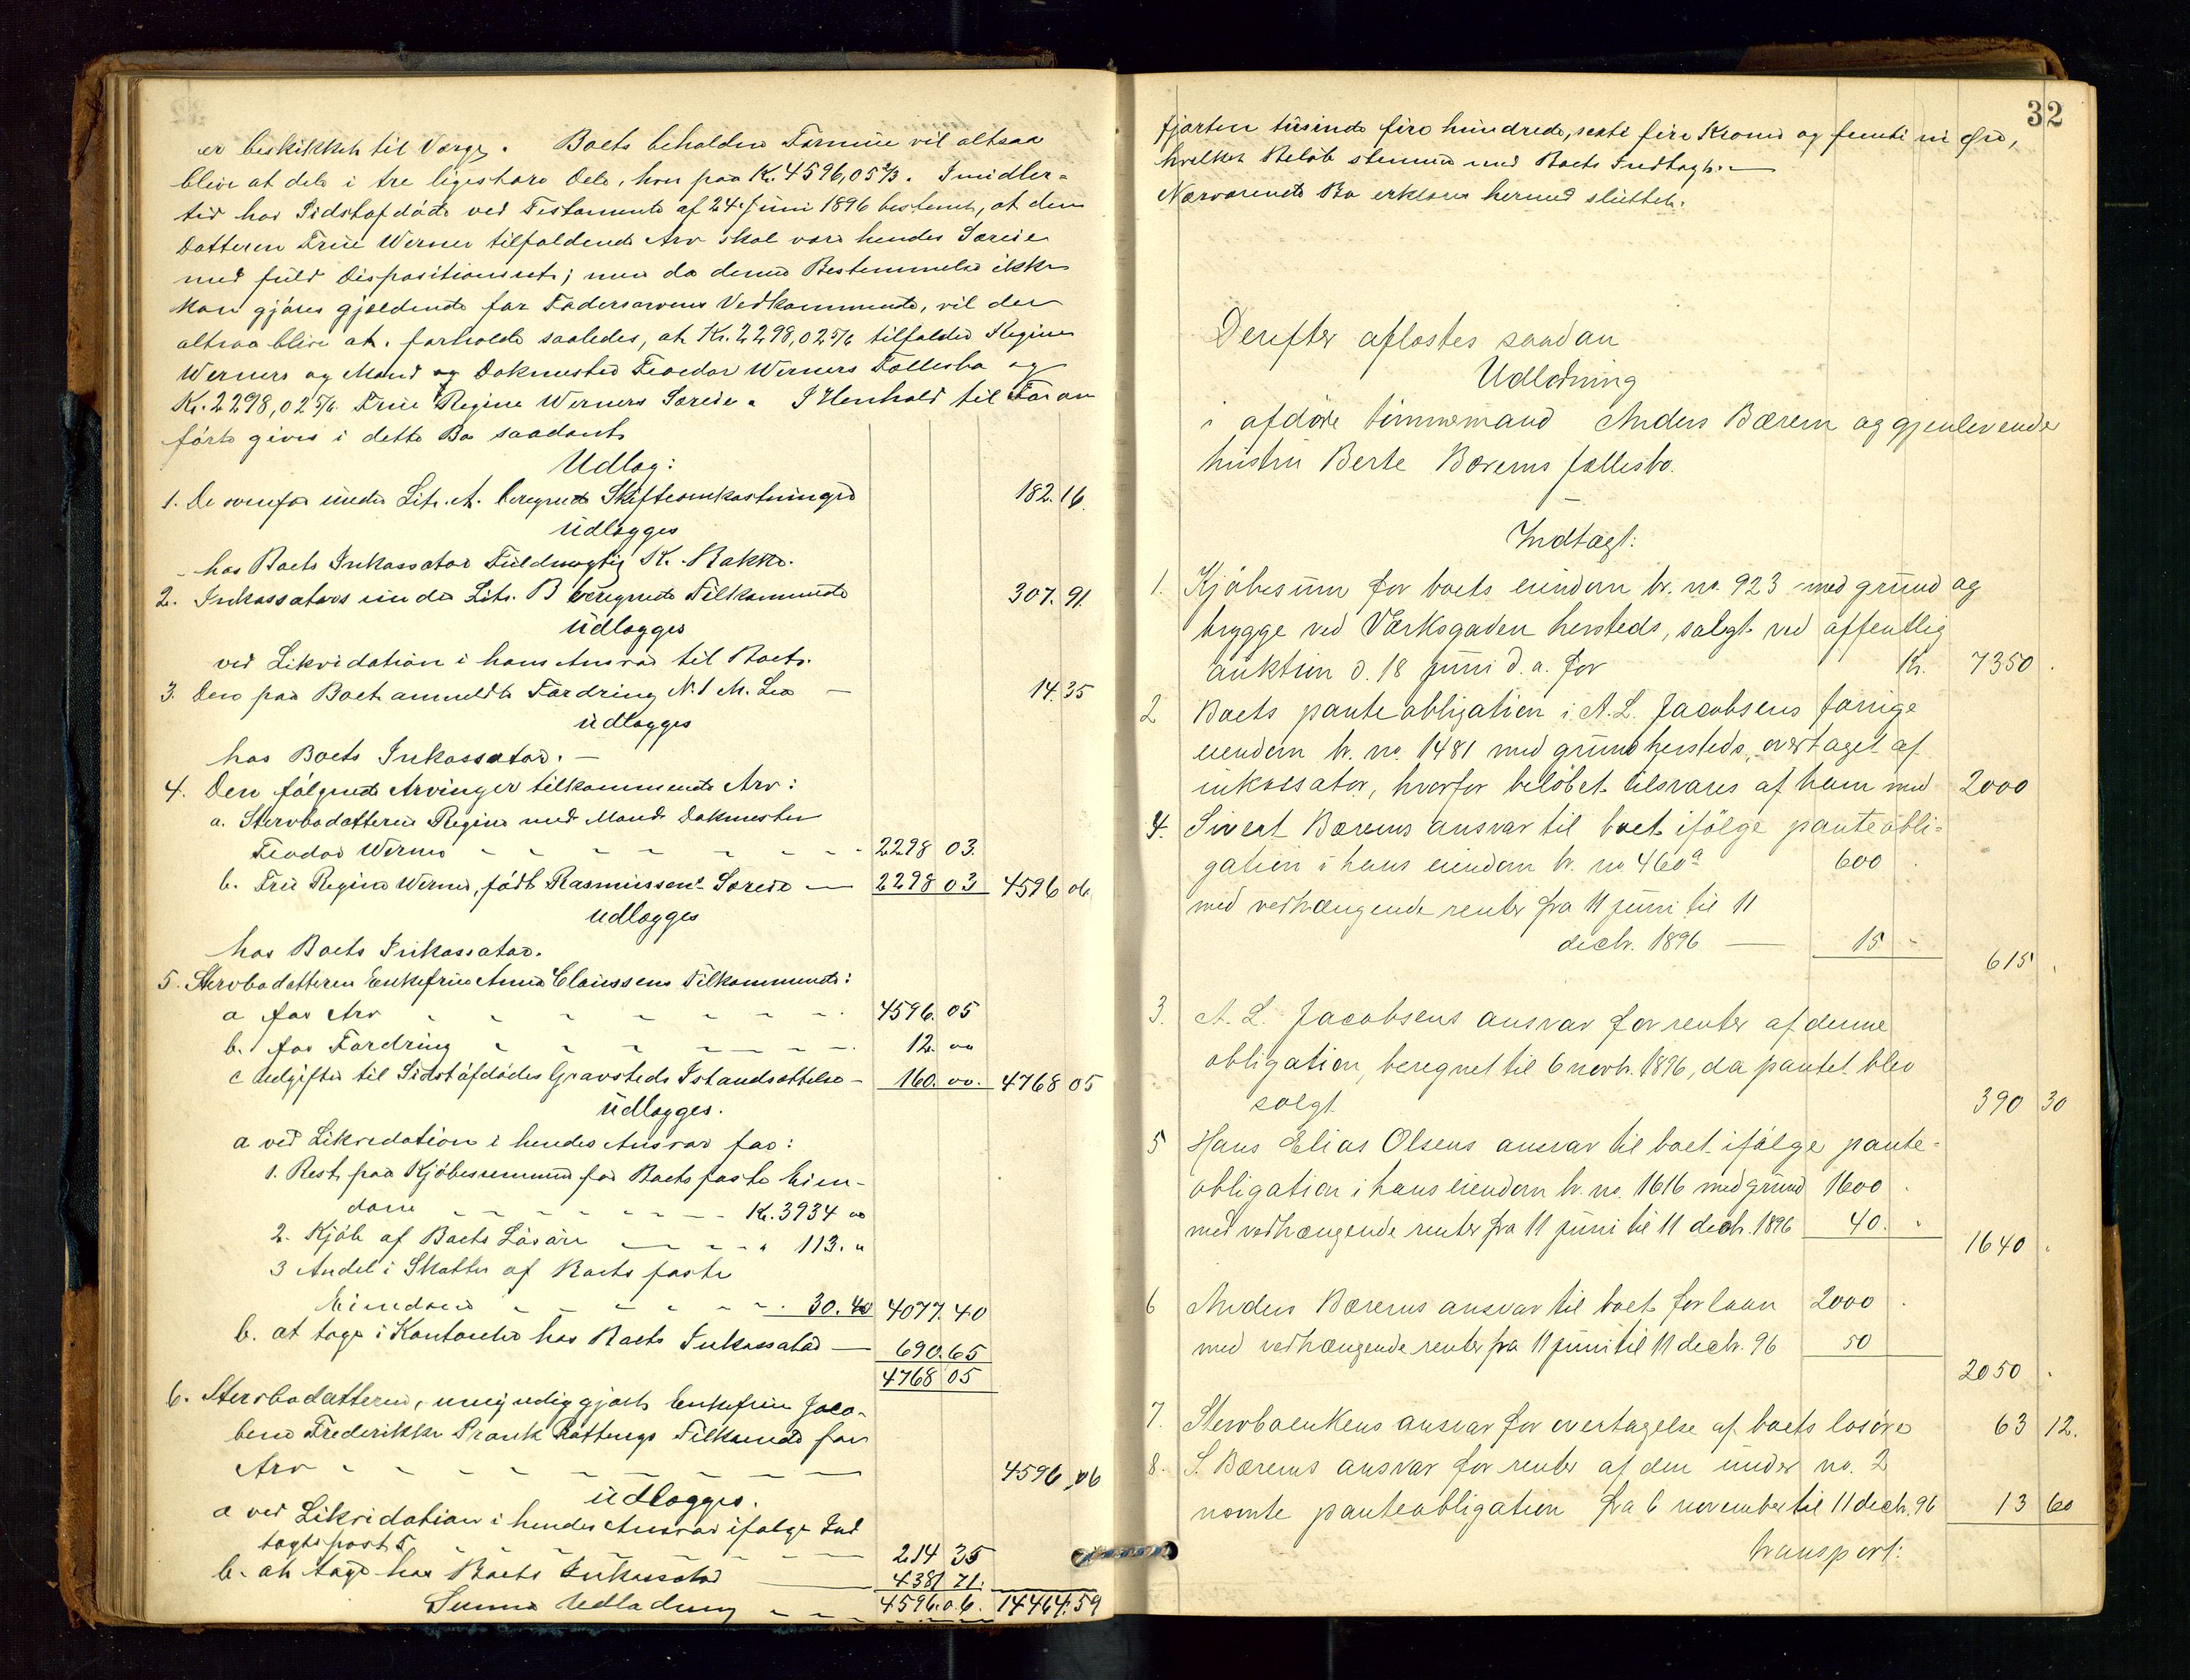 er beskikket til Værge. Boets beholdne Formue vil altsaa
blive at dele i tre ligestore Dele, hver paa Kr. 4596,05 2/3. Imidler-
tid har Sidstafdøde ved Testamente af 24 Juni 1896 bestemt, at den
Datteren Frue Werner tilfaldende Arv skal være hendes Særeie
med fuld Dispositionsret; men da denne Bestemmelse ikke
kan gjøres gjældende for Fædrearvens Vedkommende, vil der
altsaa blive at forholde saaledes, at Kr. 2298,02 5/6 tilfalder Regine
Werners og Mand Dokmester Feodor Werners Fællesbo og
Kr. 2298,02 5/6 Frue Regine Werners Særeie. I Henhold til Foran
førte gives i dette Bo saadant
Udlæg:
1. De ovenfor under Litr. A. beregnede Skifteomkostninger 182.16.
udlægges
hos Boets Inkassator Fuldmægtig K. Bakke.
2. Inkassators under Litr. B beregnede Tilkommende 307.91.
udlægges
ved Likvidation i hans Ansvar til Boet.
3. Den paa Boet anmeldte Fordring N. 1 M. Lea — 14.35
udlægges
hos Boets Inkassator. —
4. Den følgende Arvinger tilkommende Arv:
a. Stervbodatteren Regine med Mand Dokmester
Feodor Werner - - - - - - - 2298 03.
b. Frue Regine Werner, født Rasmussens Særeie — 2298 03 4596 06
udlægges
hos Boets Inkassator.
5. Stervbodatteren Enkefrue Anna Claussens Tilkommende:
a for Arv - - - - - - - 4596. 05
b. for Fordring - - - - - - - 12. 00
c Udgifter til Sidstafdødes Gravsteds Istandsættelse - 160. 00. 4768 05
udlægges.
a ved Likvidation i hendes Ansvar for:
1. Rest paa Kjøbesummen for Boets faste Eien-
dom - - - - - - Kr. 3934 00
2. Kjøb af Boets Løsøre — - - " 113. "
3 Andel i Skatter af Boets faste
Eiendom - - - - - - 30.40 4077.40
b. at tage i Kontanter hos Boets Inkassator — 690.65
4768 05
6. Stervbodatteren, umyndiggjorte Enkefrue Jaco-
bine Frederikke Prank Tilkommende for
Arv - - - - - - - 4596,06
udlægges.
a ved Likvidation i hendes Ansvar ifølge Ind
tægtspost 5 - - - - - - 214 35
b. at tage hos Boets Inkassator — 4381 71.
Summa Udlodning - - - 4596.06. 14464.59
32
fjorten tusinde fire hundrede, sexti fire Kroner og femti ni Øre,
hvilket Beløb stemmer med Boets Indtægt. —
Nærværende Bo erklæres hermed sluttet.
Derefter aflæstes saadan
Udlodning
i afdøde tømmermand Anders Bærem og gjenlevende
hustru Berte Bærems fællesbo.
—
Indtægt:
1. Kjøbesum for boets eiendom br. no. 923 med grund og
brygge ved Værksgaden hersteds, solgt ved offentlig
auktion d. 18 juni d. a. for Kr. 7350.
2 Boets panteobligation i A. L. Jacobsens forrige
eiendom br. no. 1481 med grund hersteds, overtaget af
inkassator, hvorfor beløbet tilsvares af ham med 2000
4. Sivert Bærems ansvar til boet ifølge panteobli-
gation i hans eiendom br. no 460a 600.
med vedhængende renter fra 11 juni til 11
decbr. 1896 — 15 -
615.
3. A. L. Jacobsens ansvar for renter af denne
obligation, beregnet til 6 novbr. 1896, da pantet blev
solgt 390 30
5 Hans Elias Olsens ansvar til boet ifølge pante-
obligation i hans eiendom br. no. 1616 med grund 1600.
med vedhængende renter fra 11 juni til 11 decbr. 1896 40.
1640.
6 Anders Bærems ansvar til boet for laan 2000.
med vedhængende renter fra 11 juni til 11 decbr. 96 50
2050.
7. Stervboenkens ansvar for overtagelse af boets løsøre 63 12.
8. S. Bærems ansvar for renter af den under no. 2
nævnte panteobligation fra 6 november til 11 decbr. 96 13 60
transport: